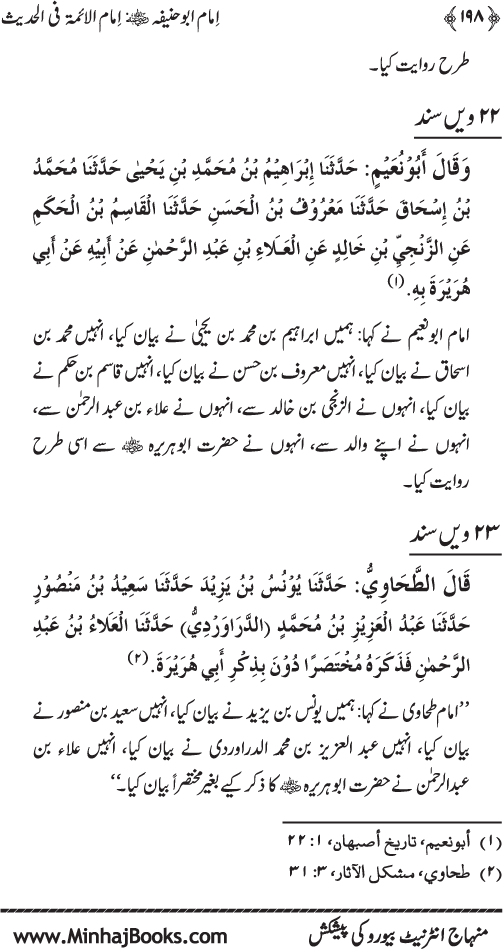 ﴿۱۹۸﴾ إمام ابو حنیفہ ﷜: إمام الائمۃ فی الحدیث
طرح روایت کیا۔
۲۲ ویں سند
وَقَالَ أَبُوْ نُعَيْمٍ: حَدَّثَنَا إِبْرَاهِيْمُ بْنُ مُحَمَّدِ بْنِ يَحْيَى حَدَّثَنَا مُحَمَّدُ
بْنُ إِسْحَاقَ حَدَّثَنَا مَعْرُوْفُ بْنُ الْحَسَنِ حَدَّثَنَا الْقَاسِمُ بْنُ الْحَكَمِ
عَنِ الزَّنْجِيِّ بْنِ خَالِدٍ عَنِ الْعَلَاءِ بْنِ عَبْدِ الرَّحْمٰنِ عَنْ أَبِيْهِ عَنْ أَبِي
هُرَيْرَةَ بِهِ. (۱)
امام ابو نعیم نے کہا: ہمیں ابراہیم بن محمد بن یحییٰ نے بیان کیا، انہیں محمد بن
اسحاق نے بیان کیا، انہیں معروف بن حسن نے بیان کیا، انہیں قاسم بن حکم نے
بیان کیا، انہوں نے الزنجی بن خالد سے، انہوں نے علاء بن عبد الرحمٰن سے،
انہوں نے اپنے والد سے، انہوں نے حضرت ابو ہریرہ ﷜ سے اسی طرح
روایت کیا۔
۲۳ ویں سند
قَالَ الطَّحَاوِيُّ: حَدَّثَنَا يُوْنُسُ بْنُ يَزِيْدَ حَدَّثَنَا سَعِيْدُ بْنُ مَنْصُوْرٍ
حَدَّثَنَا عَبْدُ الْعَزِيْزِ بْنُ مُحَمَّدٍ (الدَّرَاوَرْدِيُّ) حَدَّثَنَا الْعَلَاءُ بْنُ عَبْدِ
الرَّحْمٰنِ فَذَكَرَهُ مُخْتَصَرًا دُوْنَ بِذِكْرِ أَبِي هُرَيْرَةَ. (۲)
’’امام طحاوی نے کہا: ہمیں یونس بن یزید نے بیان کیا، انہیں سعید بن منصور نے
بیان کیا، انہیں عبد العزیز بن محمد الدراوردی نے بیان کیا، انہیں علاء بن
عبدالرحمٰن نے حضرت ابو ہریرہ ﷜ کا ذکر کیے بغیر مختصراً بیان کیا۔‘‘
(۱) أبو نعیم، تاریخ أصبهان، ۱: ۲۲
(۲) طحاوي، مشکل الآثار، ۳: ۳۱
منہاج انٹرنیٹ بیورو کی پیشکش www.MinhajBooks.com